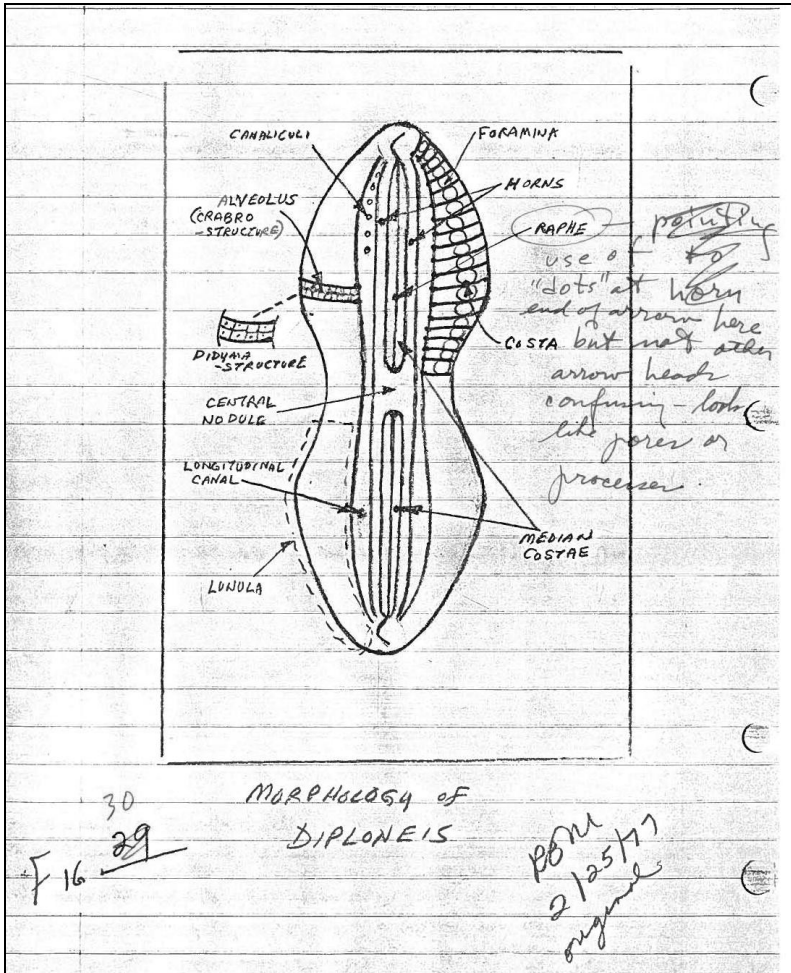 CANALICULI
FORAMINA
HORNS
ALVEOLUS
(CRABRO
-STRUCTURE)
RAPHE — pointing
use of to
"dots" at horn
end of arrow here
but not other
arrow heads
confusing - looks
like pores or
processes.
COSTA
DIDYMA
-STRUCTURE
CENTRAL
NODULE
LONGITUDINAL
CANAL
MEDIAN
COSTAE
LUNULA
MORPHOLOGY of
DIPLONEIS
30
29
F 16
2/25/77
original